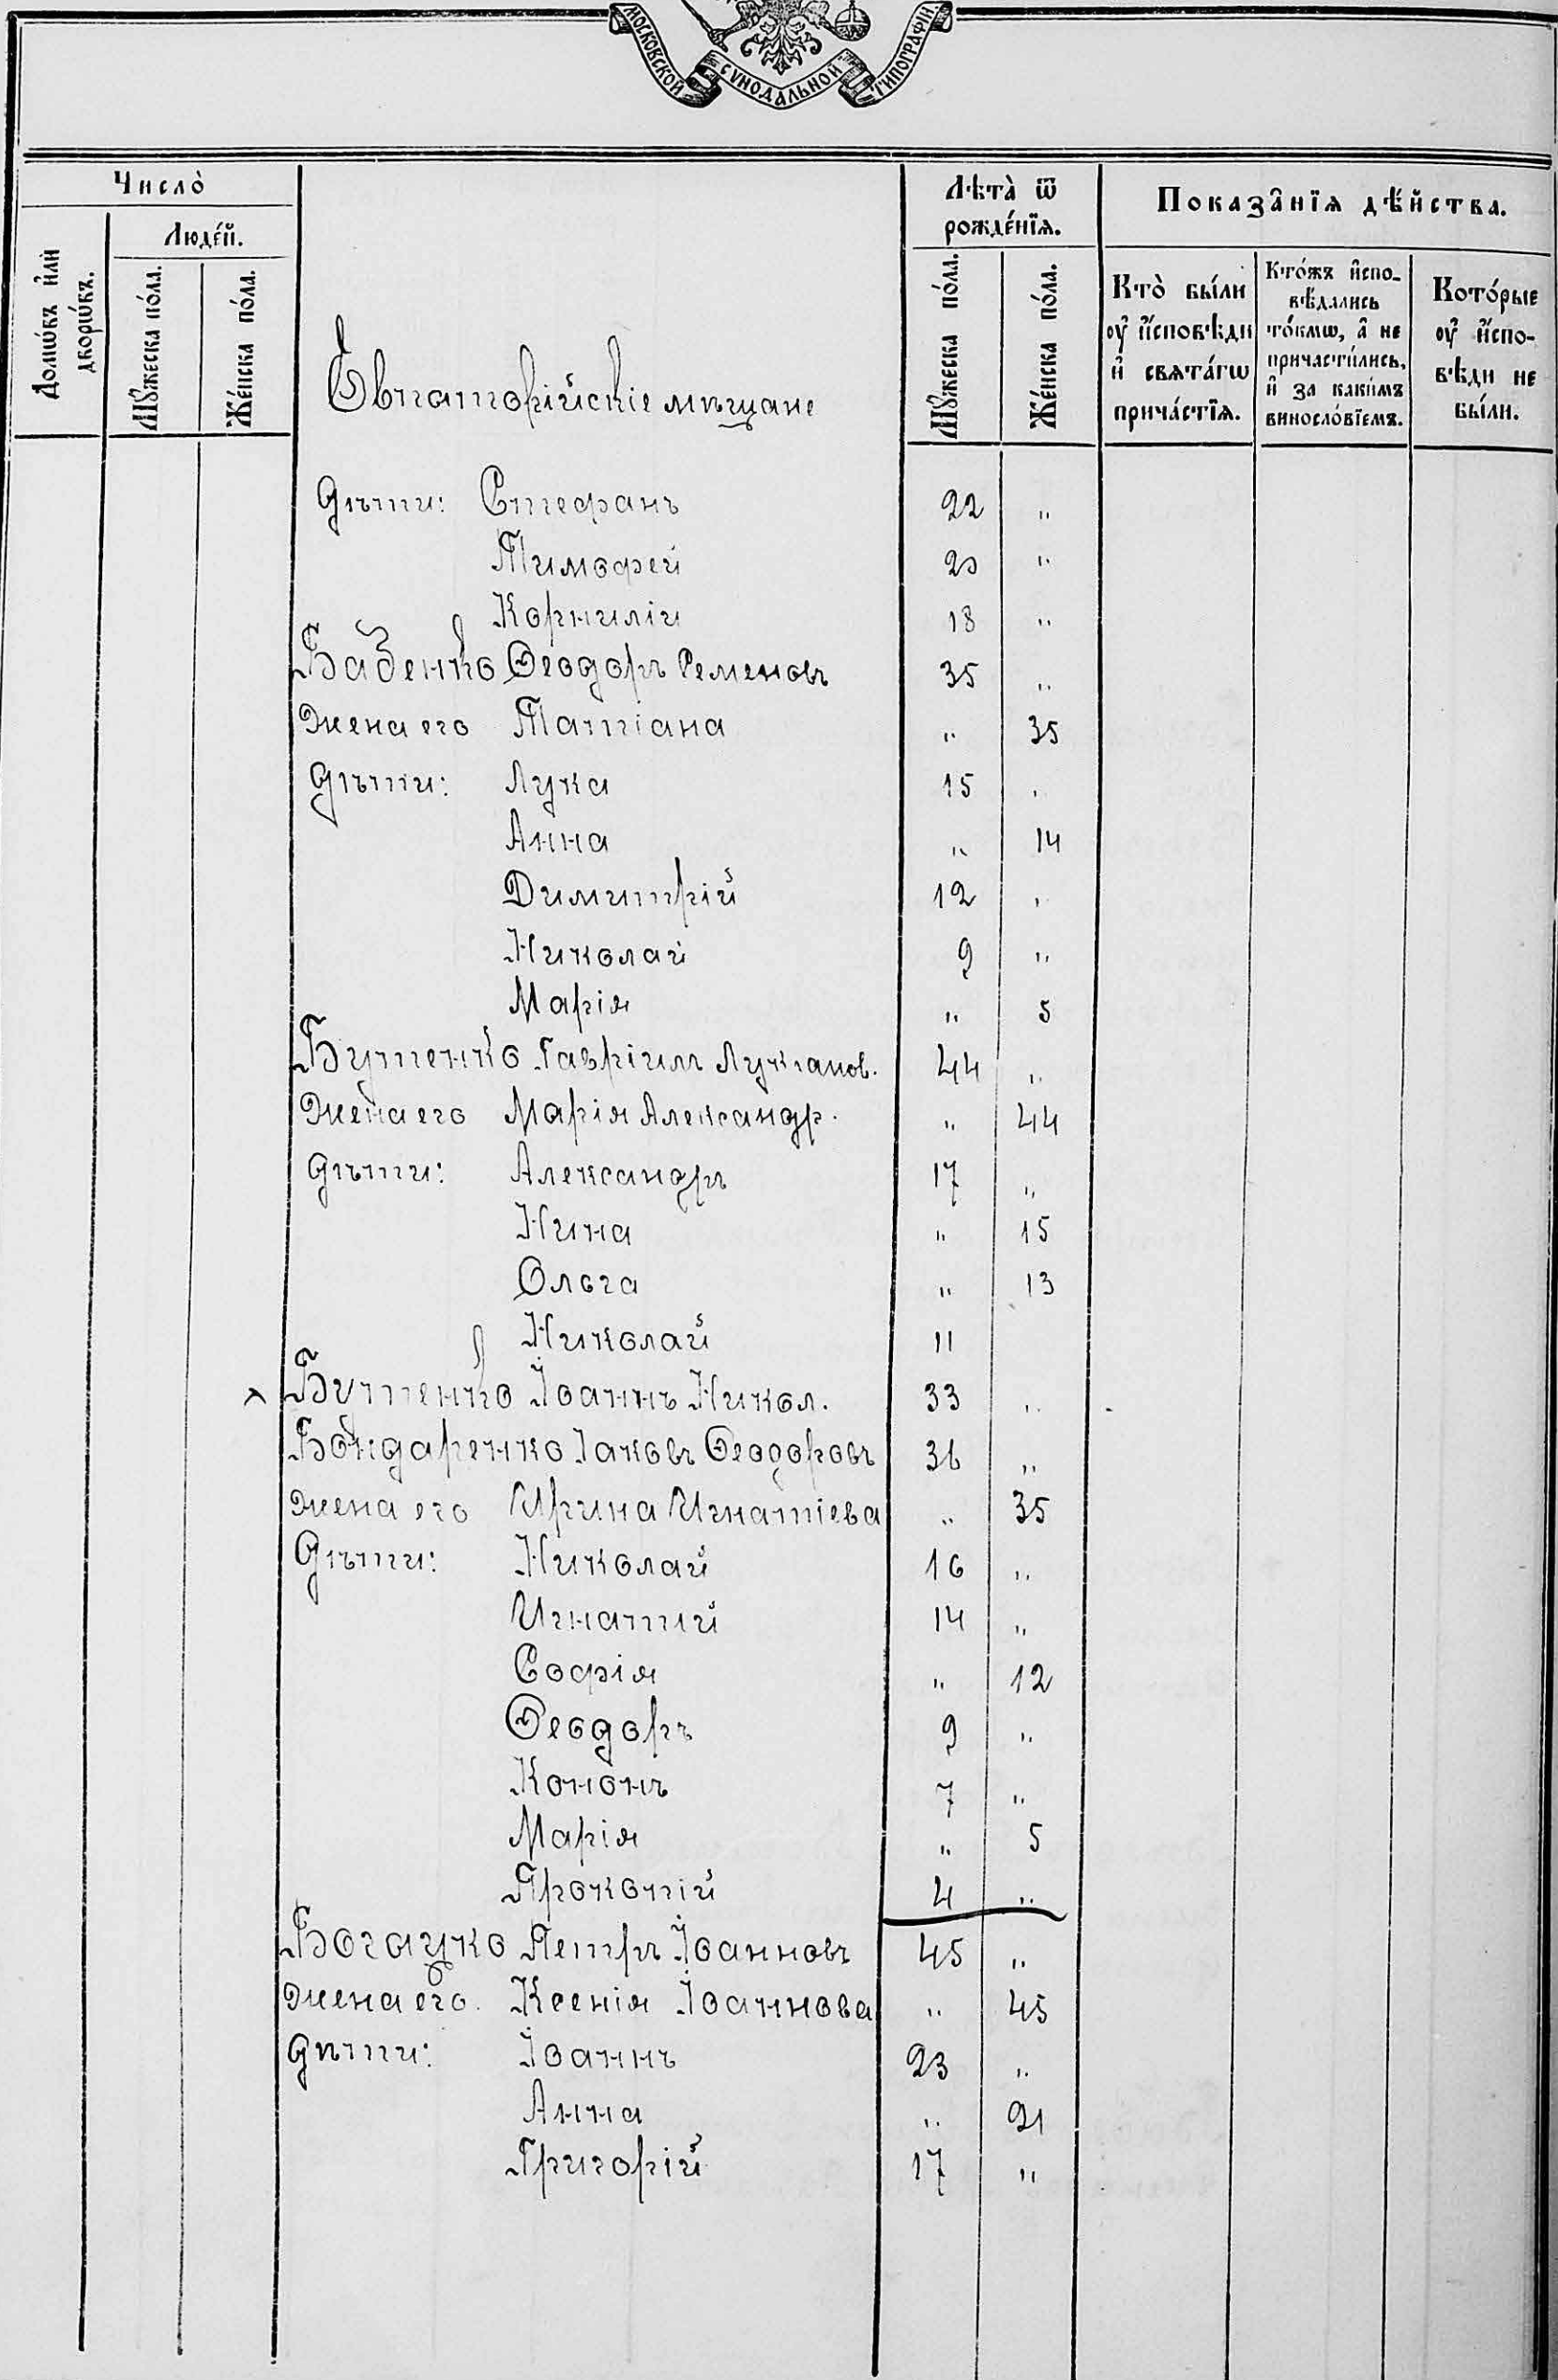 МОСКОВСКОЙ СѴНОДАЛЬНОЙ ТИПОГРАФІИ
Число̀
Люде́й.
Домѡ́въ и҆лѝ дворѡ́въ.
Мꙋ́жеска по́ла.
Же́нска по́ла.
Лѣта̀ ѿ рожде́нїѧ.
Мꙋ́жеска по́ла.
Же́нска по́ла.
Показа̑нїѧ дѣ́йства.
Кто̀ бы́ли оу҆ и҆́сповѣди и҆ свѧта́гѡ прича́стїѧ.
Кто́жъ и҆спо-
вѣ́дались
то́кмѡ, а҆ не
причасти́лись,
и҆ за каки́мъ
винословїемъ.
Кото́рые
оу҆ и҆́спо-
вѣди не
бы́ли.
Евпаторійскіе мѣщане
Дѣти: Стефанъ 22 "
Тимофей 20 "
Корнилій 18 "
Баденко Ѳеодоръ Семеновъ 35 "
Жена его Татіана " 35
Дѣти: Лука 15 "
Анна " 14
Димитрій 12 "
Николай 9 "
Марія " 5
Бутенко Гавріилъ Лукіанов. 44 "
Жена его Марія Александр. " 44
Дѣти: Александръ 17 "
Нина " 15
Ольга " 13
Николай 11
× Бутенко Іоаннъ Никол. 33 "
Бондаренко Іаковъ Ѳеодоровъ 36 "
Жена его Ирина Игнатіева " 35
Дѣти: Николай 16 "
Игнатій 14 "
Софія " 12
Ѳеодоръ 9 "
Кононъ 7 "
Марія " 5
Прокопій 4 "
Богацко Петръ Іоанновъ 45 "
Жена его Ксенія Іоаннова " 45
Дѣти: Іоаннъ 23 "
Анна " 21
Григорій 17 "